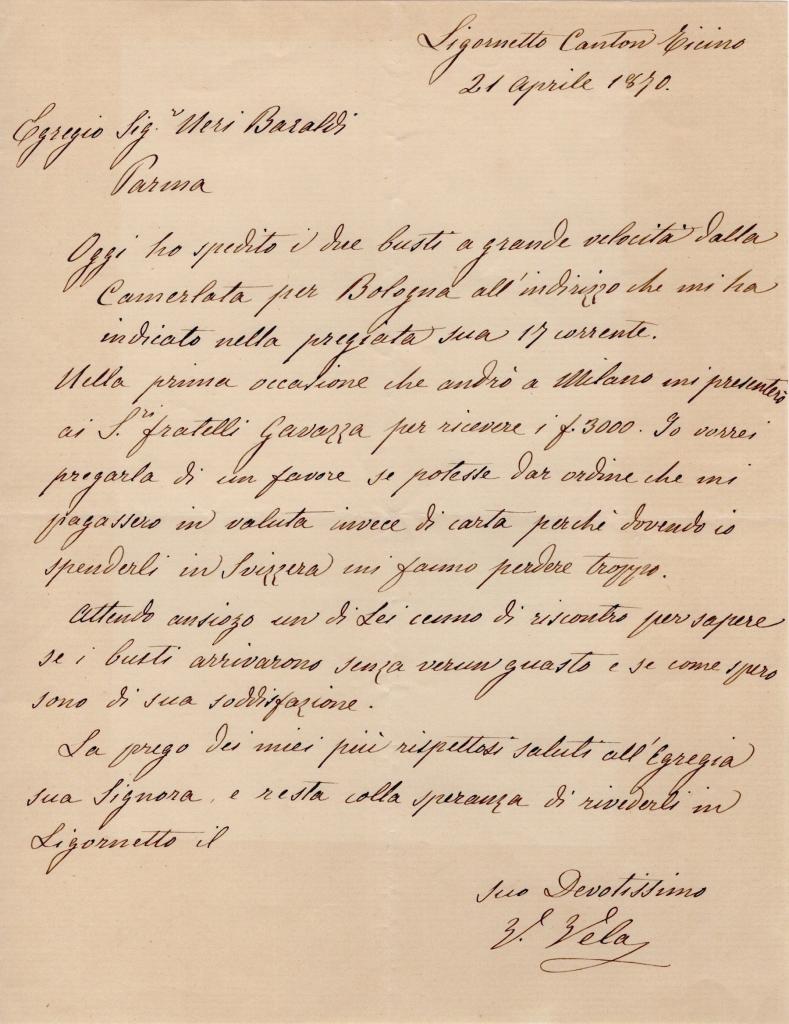 Ligornetto Canton Ticino
21 Aprile 1870.
Egregio Sig.r Neri Baraldi
Parma
Oggi ho spedito i due busti a grande velocità dalla
Camerlata per Bologna all'indirizzo che mi ha
indicato nella pregiata sua 17 corrente.
Nella prima occasione che andrò a Milano mi presenterò
ai S.ri fratelli Gavazza per ricevere i f. 3000. Io vorrei
pregarla di un favore se potesse dar ordine che mi
pagassero in valuta invece di carta perchè dovendo io
spenderli in Svizzera mi fanno perdere troppo.
Attendo ansiozo un di Lei cenno di riscontro per sapere
se i busti arrivarono senza verun guasto e se come spero
sono di sua soddisfazione.
La prego dei miei più rispettosi saluti all'Egregia
sua Signora, e resta colla speranza di rivederli in
Ligornetto il
suo Devotissimo
V. Vela